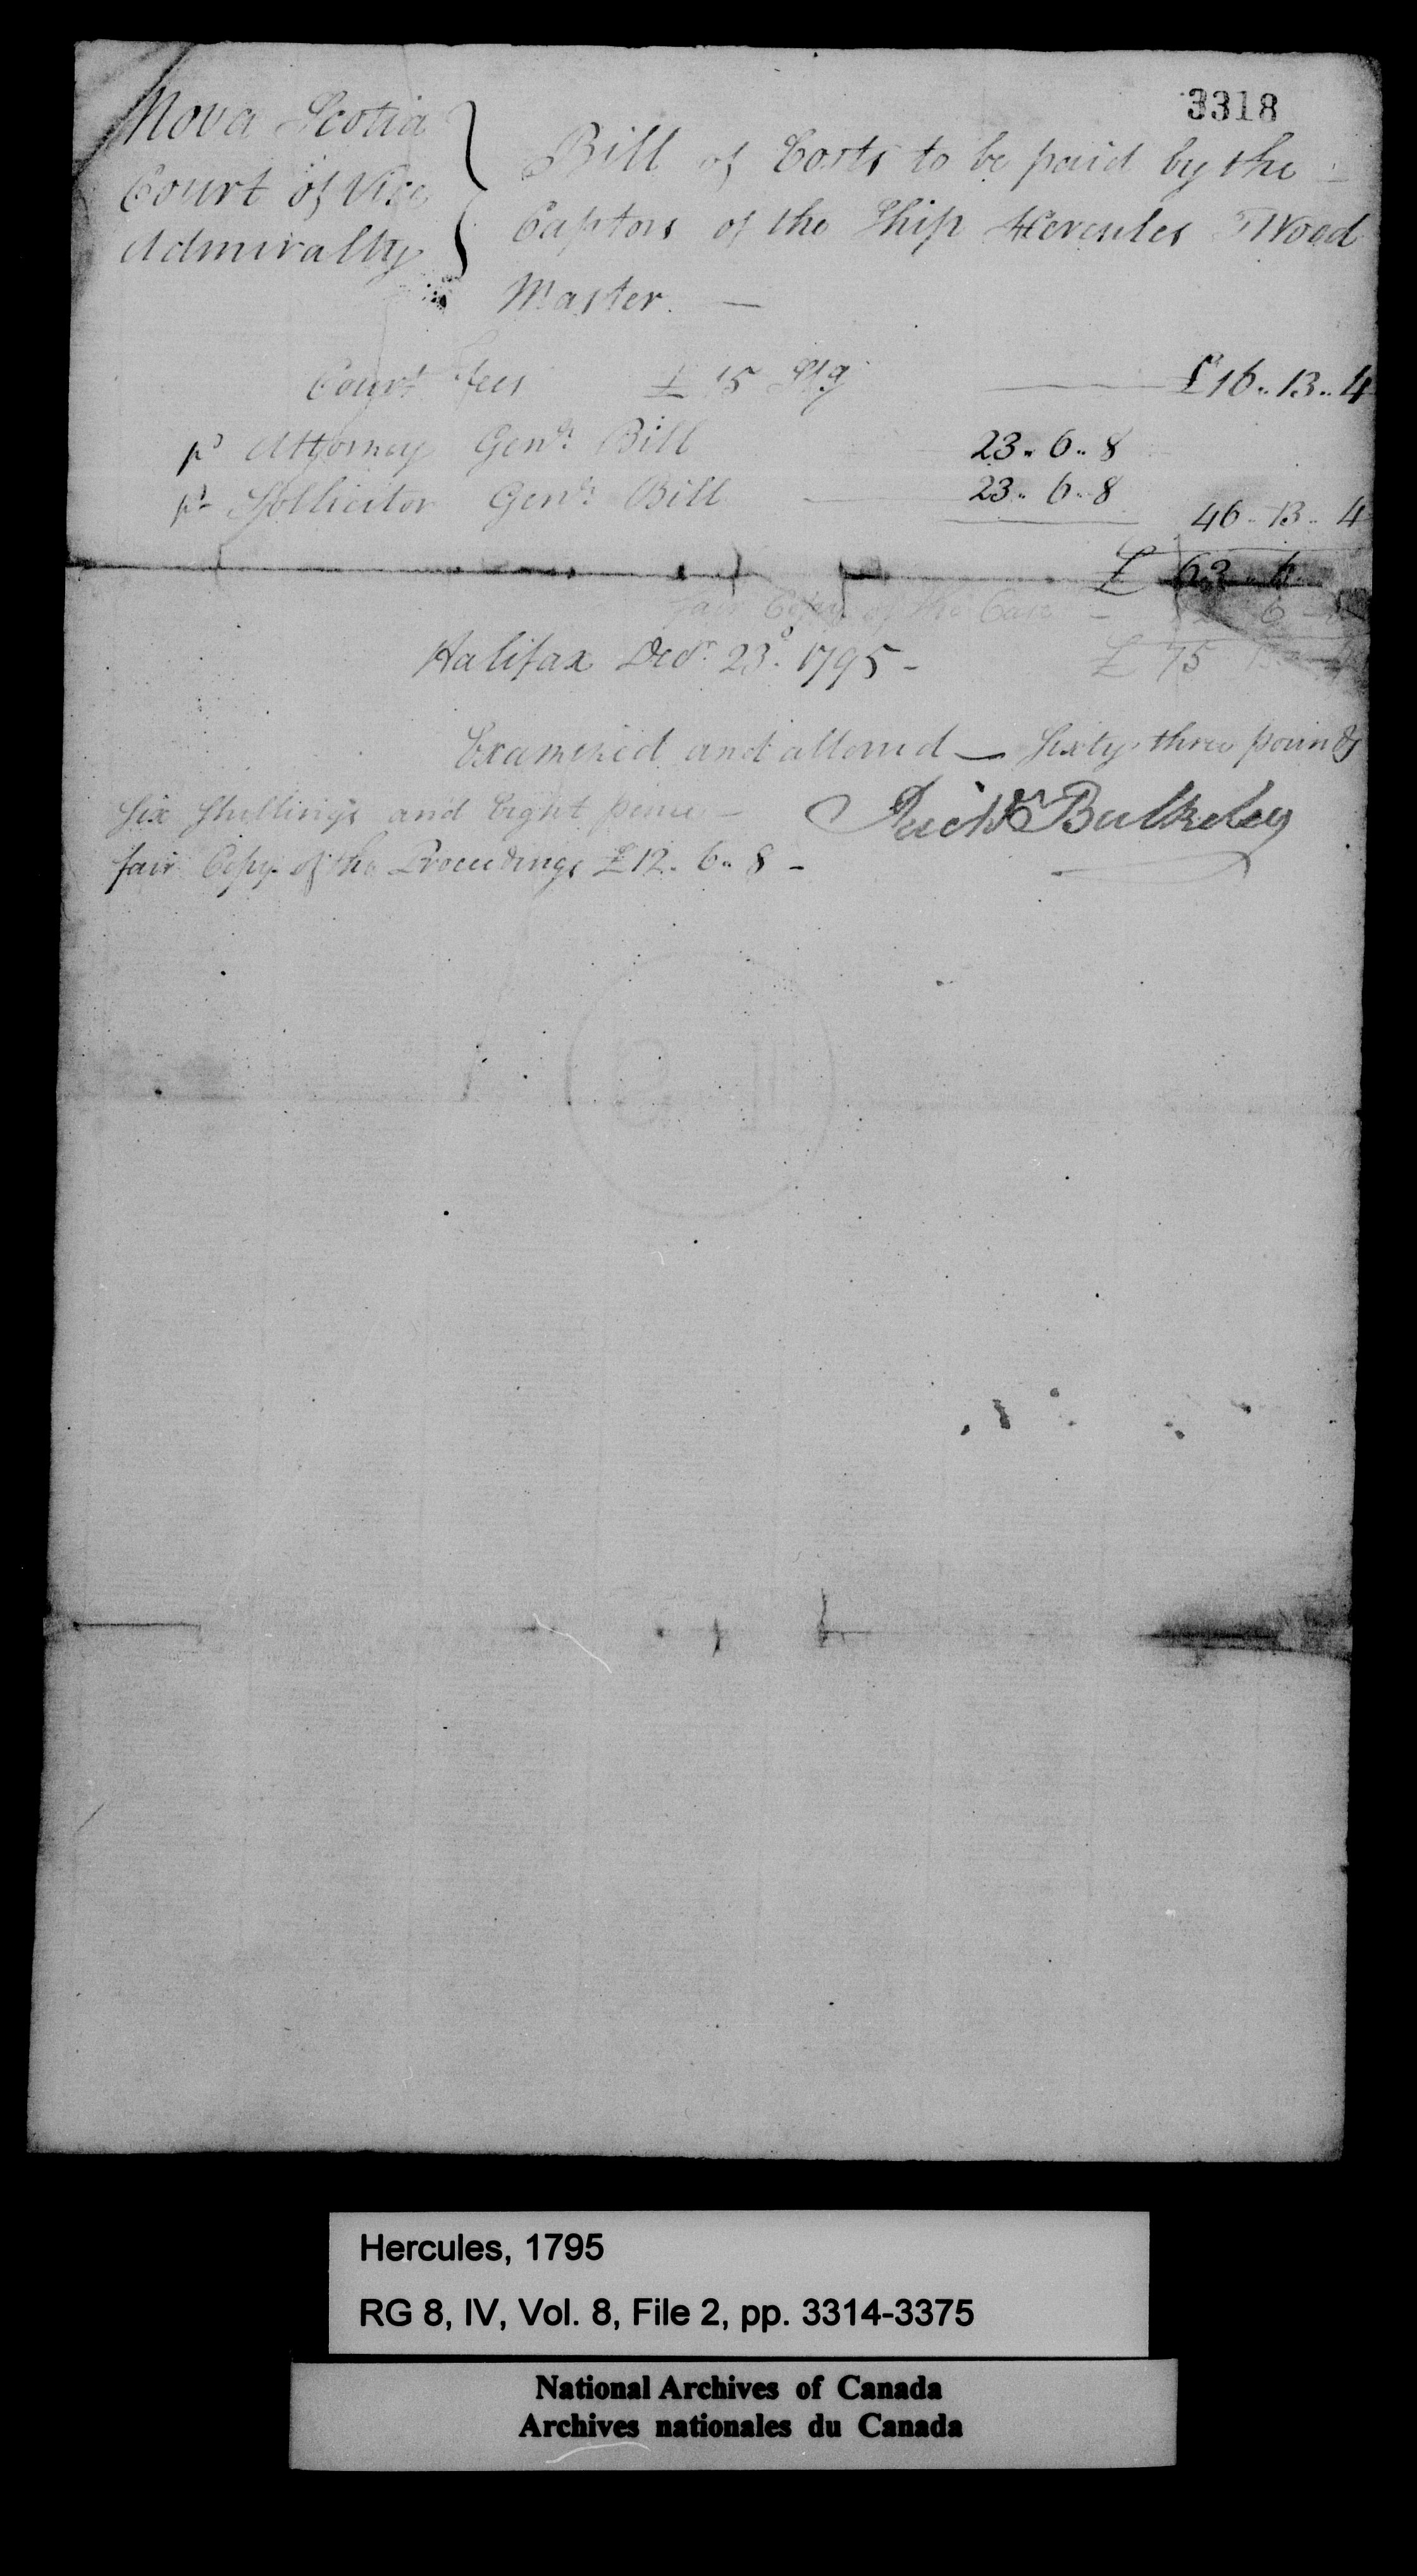 3318
Nova Scotia
Court of Vice
Admiralty
Bill of Costs to be paid by the
Captors of the Ship Hercules Wood
Master. —
Court fees £ 15 Stg £16..13..4
pr Attorney Genls Bill 23..6..8
pr Sollicitor Genls Bill 23..6..8
46..13..4
£ 63..6
fair Copy of the Case - 12 6
£ 75 13
Halifax Decr. 23d. 1795 -
Examined and allowed — Sixty three pounds
Six Shillings and Eight pence -
Richd Bulkeley
fair Copy of the Proceedings £12..6..8 -
Hercules, 1795
RG 8, IV, Vol. 8, File 2, pp. 3314-3375
National Archives of Canada
Archives nationales du Canada